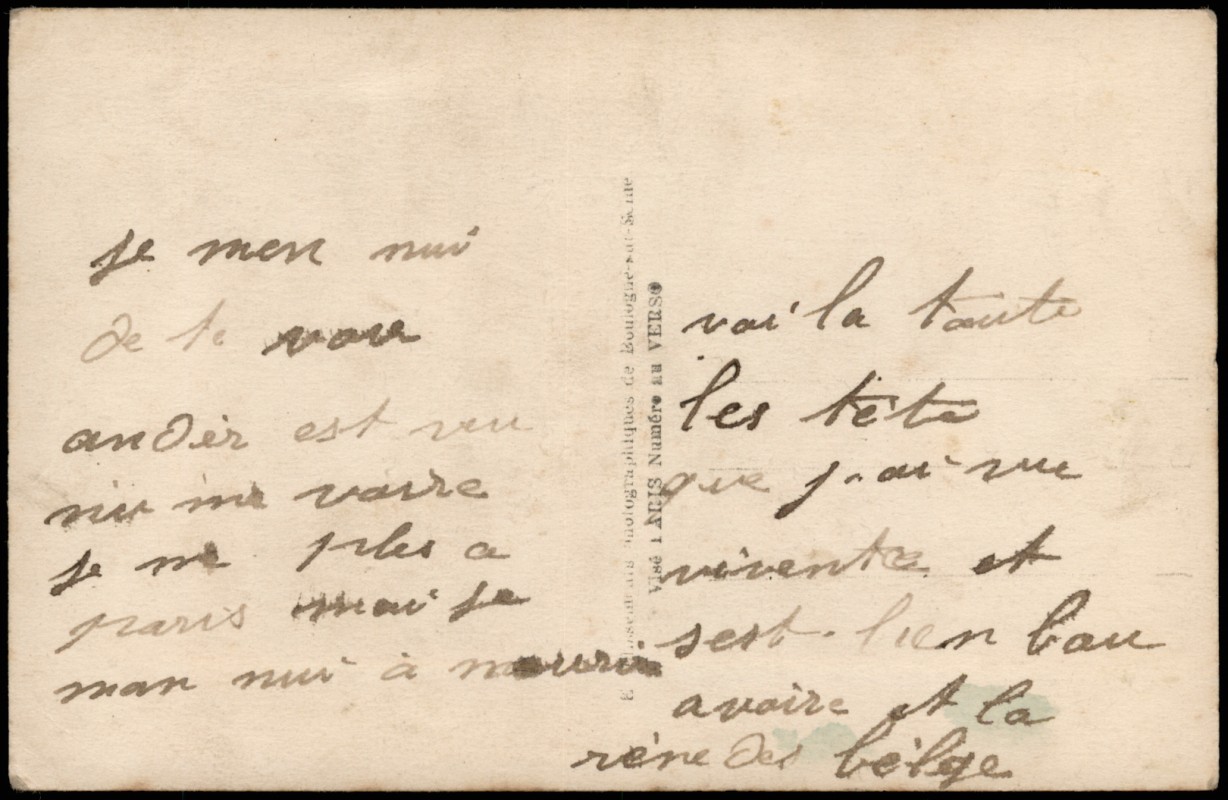 je men nui
de te voir
andèr est veu
nu me voire
je me ples a
paris mai je
man nui à mourir
Etablissements Photographiques de Boulogne-sur-Seine
Visé PARIS Numéro au VERSO
vai la toute
les tète
que j-ai vu
vivente et
sest bien bau
avoire et la
rène des bèlge